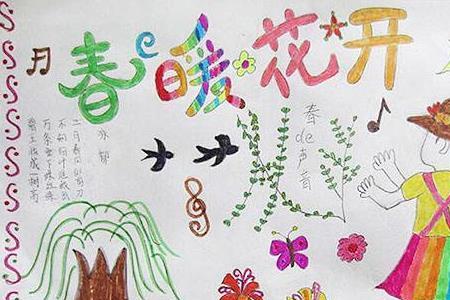 春暖花开
咏柳
碧玉妆成一树高
万条垂下绿丝绦
不知细叶谁裁出
二月春风似剪刀
春de声音